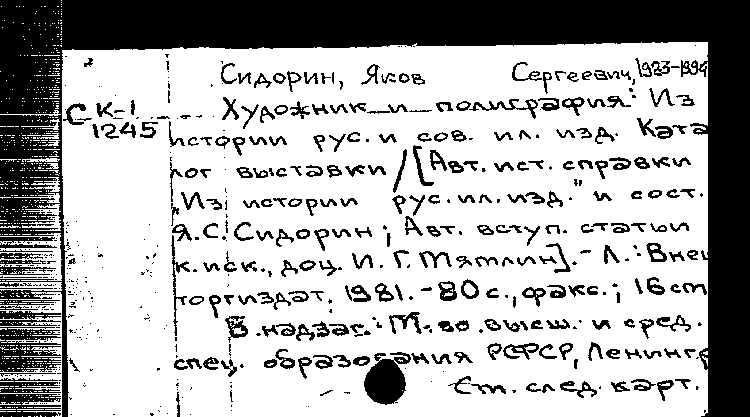 Сидорин, Яков Сергеевич, 1923-1994
С К-1
1245
Художник и полиграфия: Из
истории рус. и сов. ил. изд. Ката
лог выставки / [Авт. ист. справки
"Из истории рус. ил. изд." и сост.
Я.С. Сидорин; Авт. вступ. статьи
к. иск., доц. И. Г. Мямлин]. - Л.: Внеш
торгиздат, 1981. - 80 с., факс.; 16 см
В надзаг.: М-во высш. и сред.
спец. образования РСФСР, Ленингр
См. след. карт.